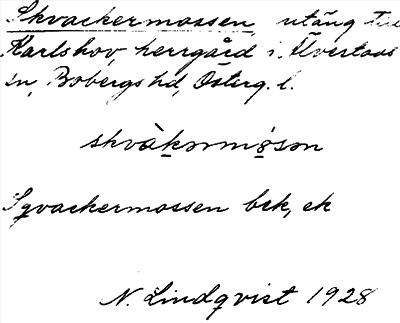 Skvackermossen, utäng till
Karlshov, herrgård i Älvertads
sn, Bobergs hd, Österg. l.
skvàkərmo̤sən
Sqvackermossen bek, ek
N. Lindqvist 1928